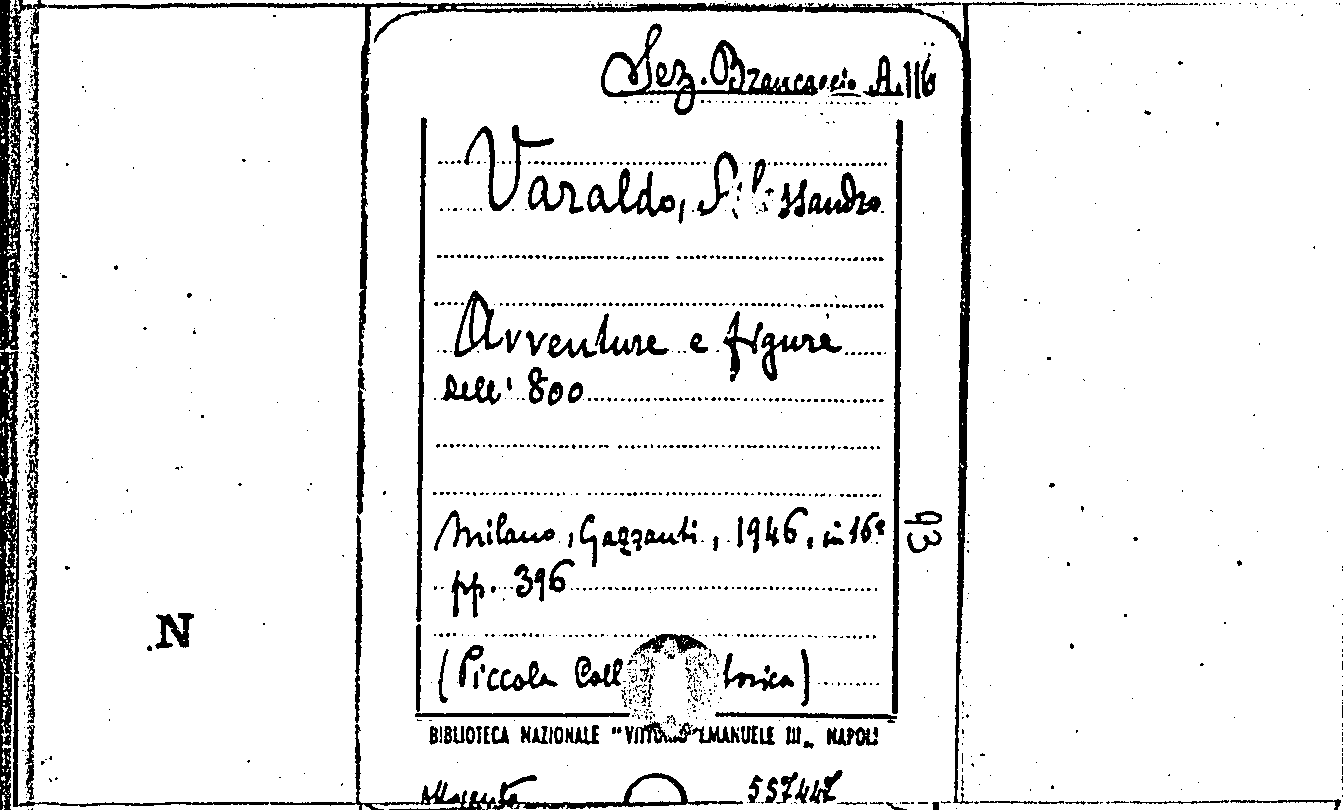 Sez. Brancaccio A.116
Varaldo, Alessandro
Avventure e figure
dell' 800
Milano, Gazzanti, 1946, in 16°
93
pp. 396
N
(Piccola Coll torica)
BIBLIOTECA NAZIONALE "VITTORIO EMANUELE III„ NAPOLI
557447